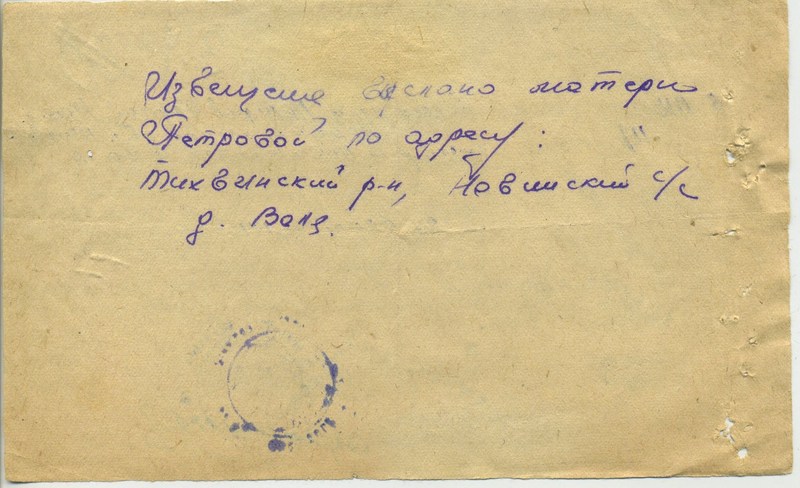 Извещение выслано матери
Петровой по адресу:
Тихвинский р-н, Новинский с/с
д. Валя.